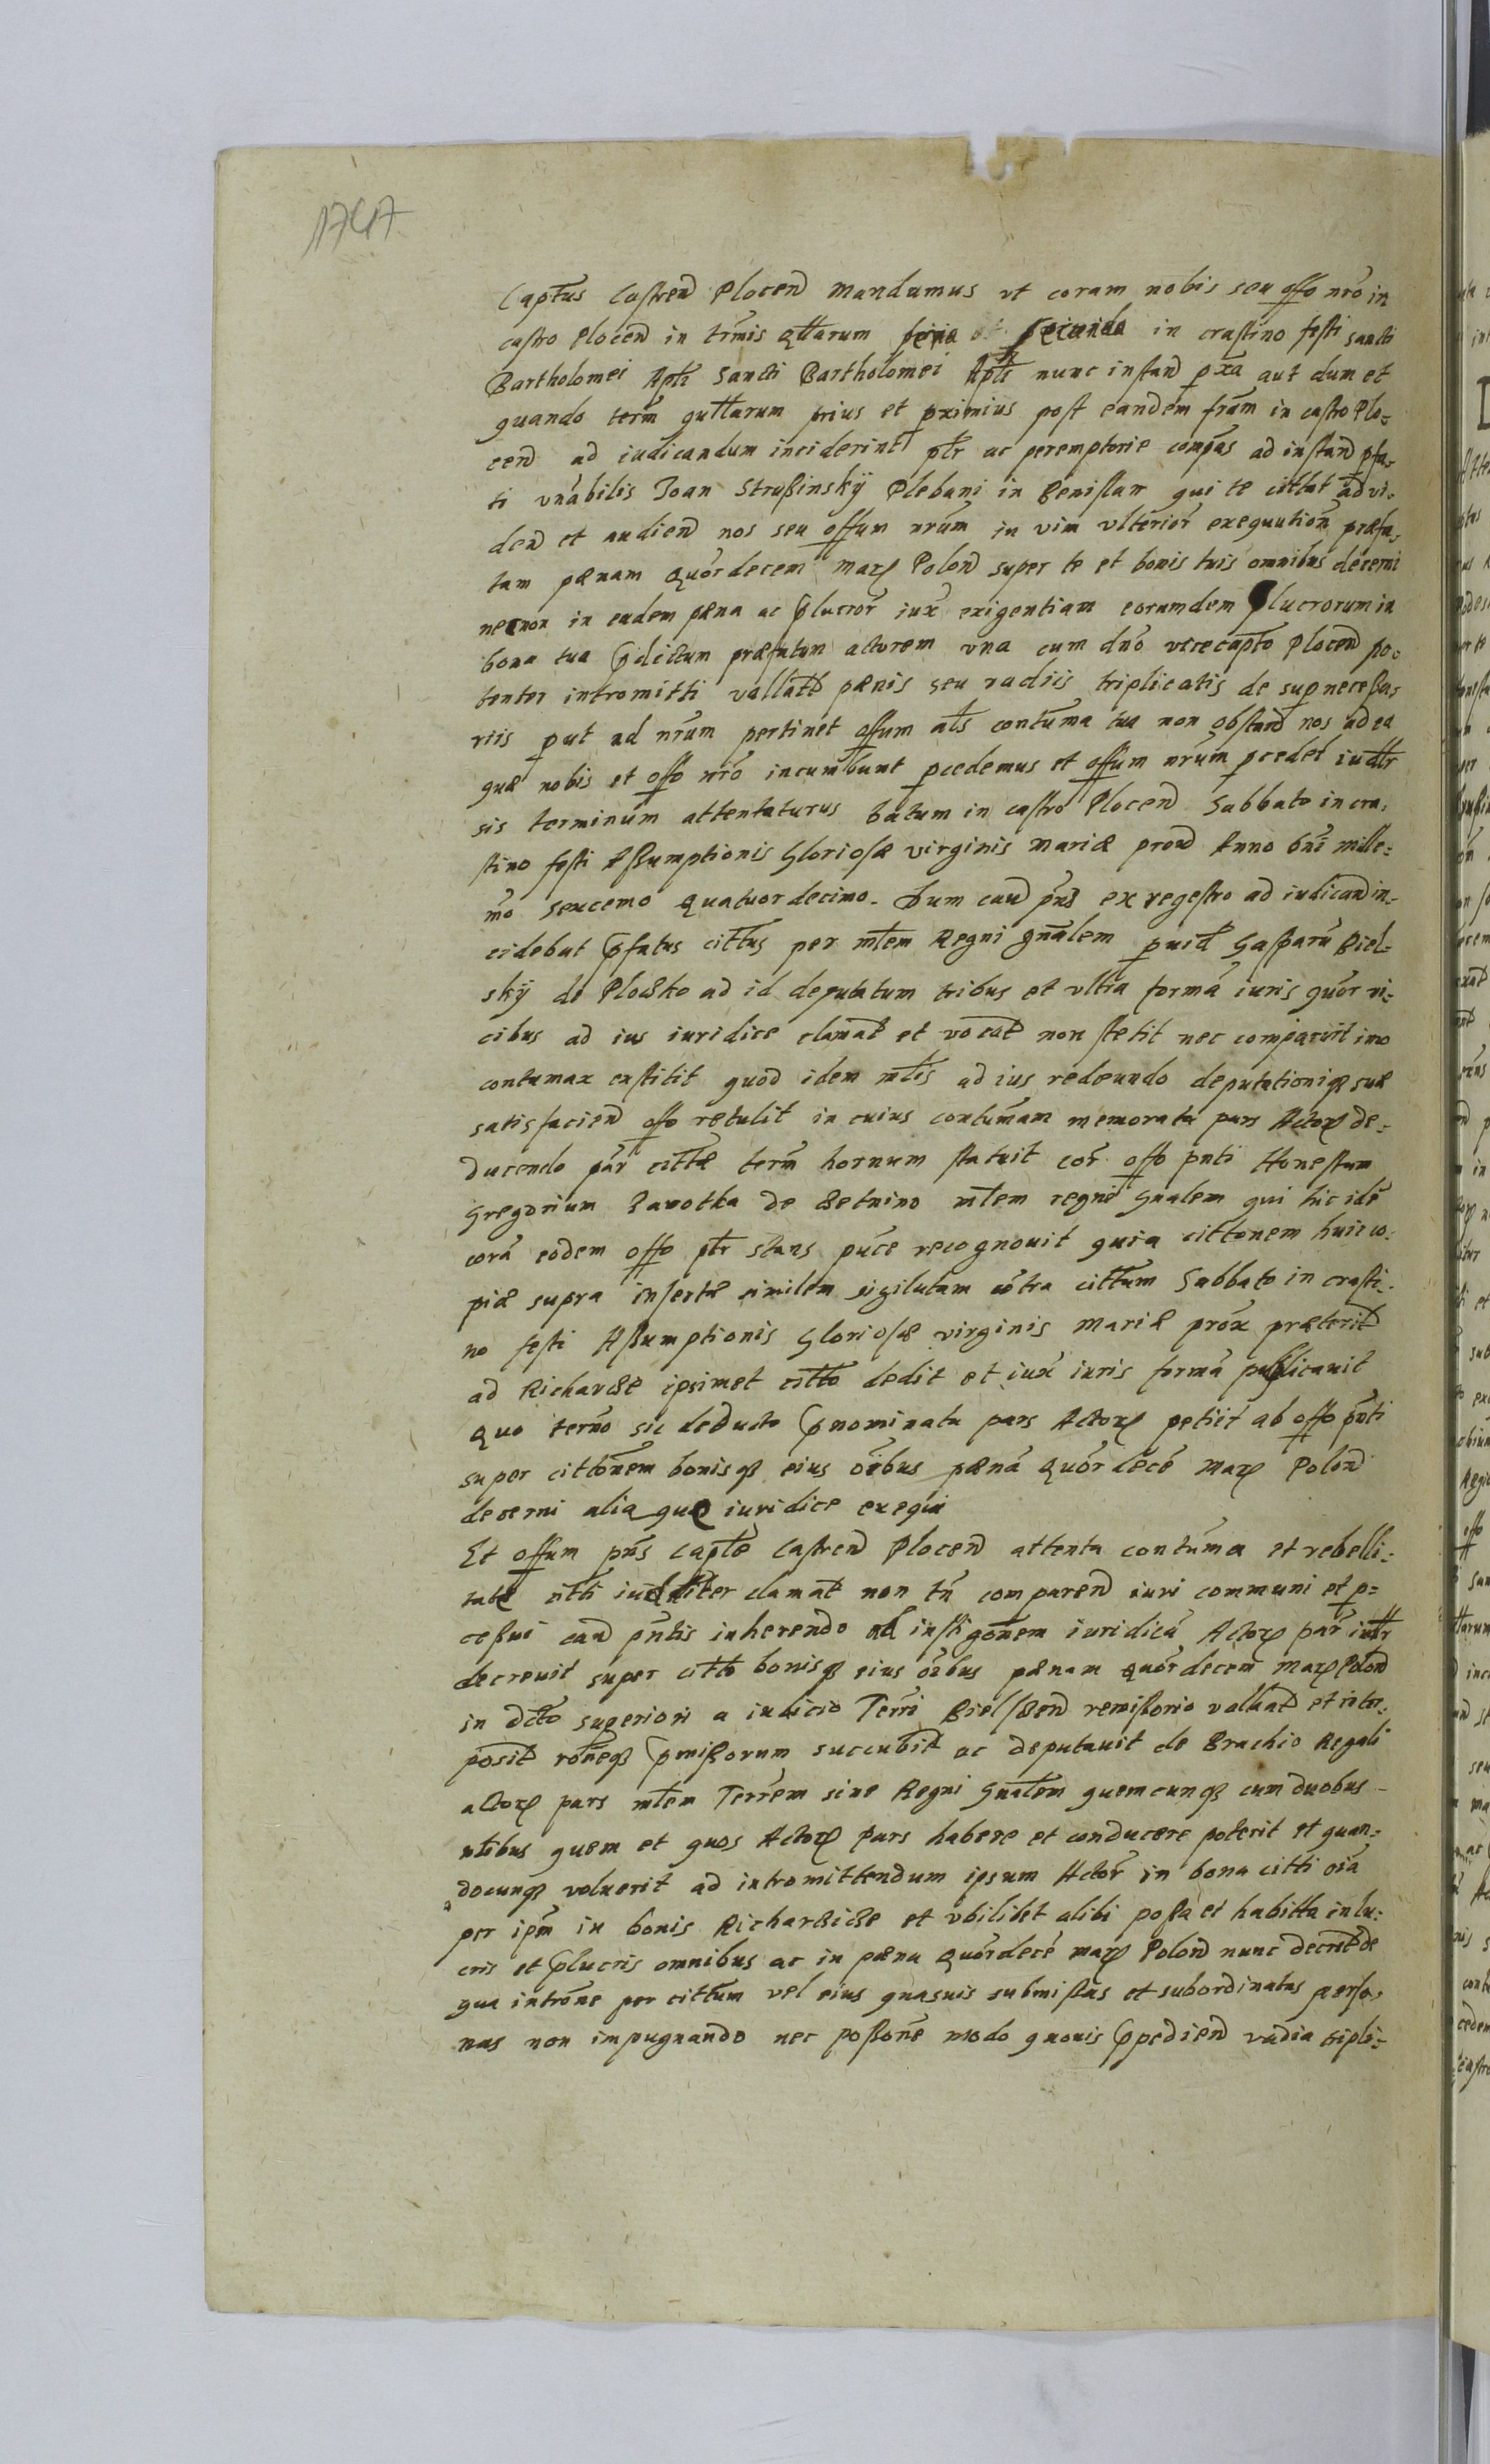 1747
Captus Castren Plocen Mandamus vt coram nobis seu offo nro in
castro Plocen in trmis qttarum feria secunda in crastino festi sancti
Bartholomei Apli Sancti Bartholomei Apli nunc instan pxa aut dum et
quando term quttarum prius et proximius post eandem fram in castro Plo-
cen ad iudicandum inciderint ptr ac peremptorie compas ad instan pfa-
ti vnabilis Joan Strußinskÿ Plebani in qui te cittat ad vi-
den et audien nos seu offum nrum in vim vlterior exequution præfa-
tam pænam quor decem marc Polon super te et bonis tuis omnibus decerni
necnon in eadem pæna ac plucror iux exigentiam eorumdem plucrorum in
bona tua pdictum præfatum actorem vna cum dno vicecapto Plocen po-
tenter intromitti vallatt pænis seu vadiis triplicatis de sup necessa-
riis put ad nrum pertinet offum als contuma tua non obstan nos ad ea
quæ nobis et offo nro incumbunt pcedemus et offum nrum pcedet iudtr
sis terminum attentaturus Datum in castro Plocen Sabbato in cra-
stino festi Assumptionis Gloriosæ virginis Mariæ prox Anno Dni mille-
mo sexcemo quatuordecimo. Dum cau pns ex regestro ad iudican in-
cidebat pfatus cittus per mtem Regni gnalem puid Gasparu Biel-
skÿ de Plocko ad id deputatum tribus et vltra forma iuris quor vi-
cibus ad ius iuridice clamat et vocat non stetit nec comparuit imo
contumax exstitit quod idem mtis ad ius redeundo deputationiq suæ
satisfacien offo retulit in cuius contumam memorata pars Actorea de-
ducendo par cittæ term hornum statuit cor offo pnti Honestum
Gregorium de mtem regni Gnalem qui hic ide
cora eodem offo ptr stans puce recognouit quia cittonem huic co-
piæ supra insertæ similem sigilatam contra cittum Sabbato in crasti-
no festi Assumptionis Gloriosæ virginis Mariæ prox præterit
ad ipsimet citto dedit et iux iuris forma publicauit
quo termo sic deducto pnominata pars Actorea petiit ab offo pnti
super cittonem bonisq eius oibus pæna quordece marc Polon
decerni aliaque iuridice exequi
Et offum pns Captæ Castren Plocen attenta contuma et rebelli-
tate citti iudtiter clamat non tn comparen iuri communi et p-
cessui cau pntis inherendo ad instigonem iuridica Actorea par iudtr
decreuit super citto bonisq eius oibus pænam quordecem marc Polon
in dcto superiori a iudicio Terri Bielscen remissorio vallat et inter-
posit roneq pmissorum succubit ac deputauit de Brachio Regali
actorea pars mtem Terrem siue Regni Gnalem quemcunq cum duobus
ntibus quem et quos Actorea pars habere et conducere poterit et quan-
docunq voluerit ad intromittendum ipsum Actor in bona citti oia
per ipm in bonis et vbilibet alibi possa et habitta in lu-
cris et plucris omnibus ac in pæna quordece marc Polon nunc decret de
qua introne per cittum vel eius quasuis submissas et subordinatas perso-
nas non impugnando nec possone modo quouis ppedien vadia tripli-